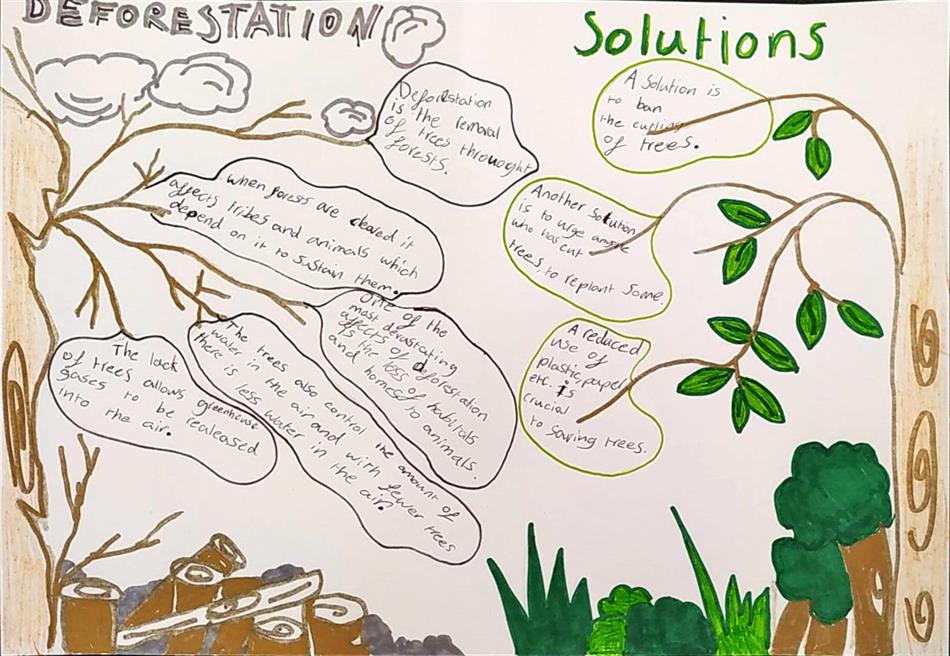 DEFORESTATION
Deforestation
is the removal
of trees throught
forests.
when forests are cleared it
affects tribes and animals which
depend on it to sustain them.
One of the
most devastating
affects of deforestation
is the loss of habitats
and homes to animals.
The lack
of trees allows greenhouse
gases to be realeased
into the air.
The trees also control the amount of
water in the air and with fewer trees
there is less water in the air.
Solutions
A solution is
to ban
the cutting
of trees.
Another solution
is to urge anyone
who has cut
trees, to replant some.
A reduced
use of
plastic, paper
etc. is
crucial
to saving trees.